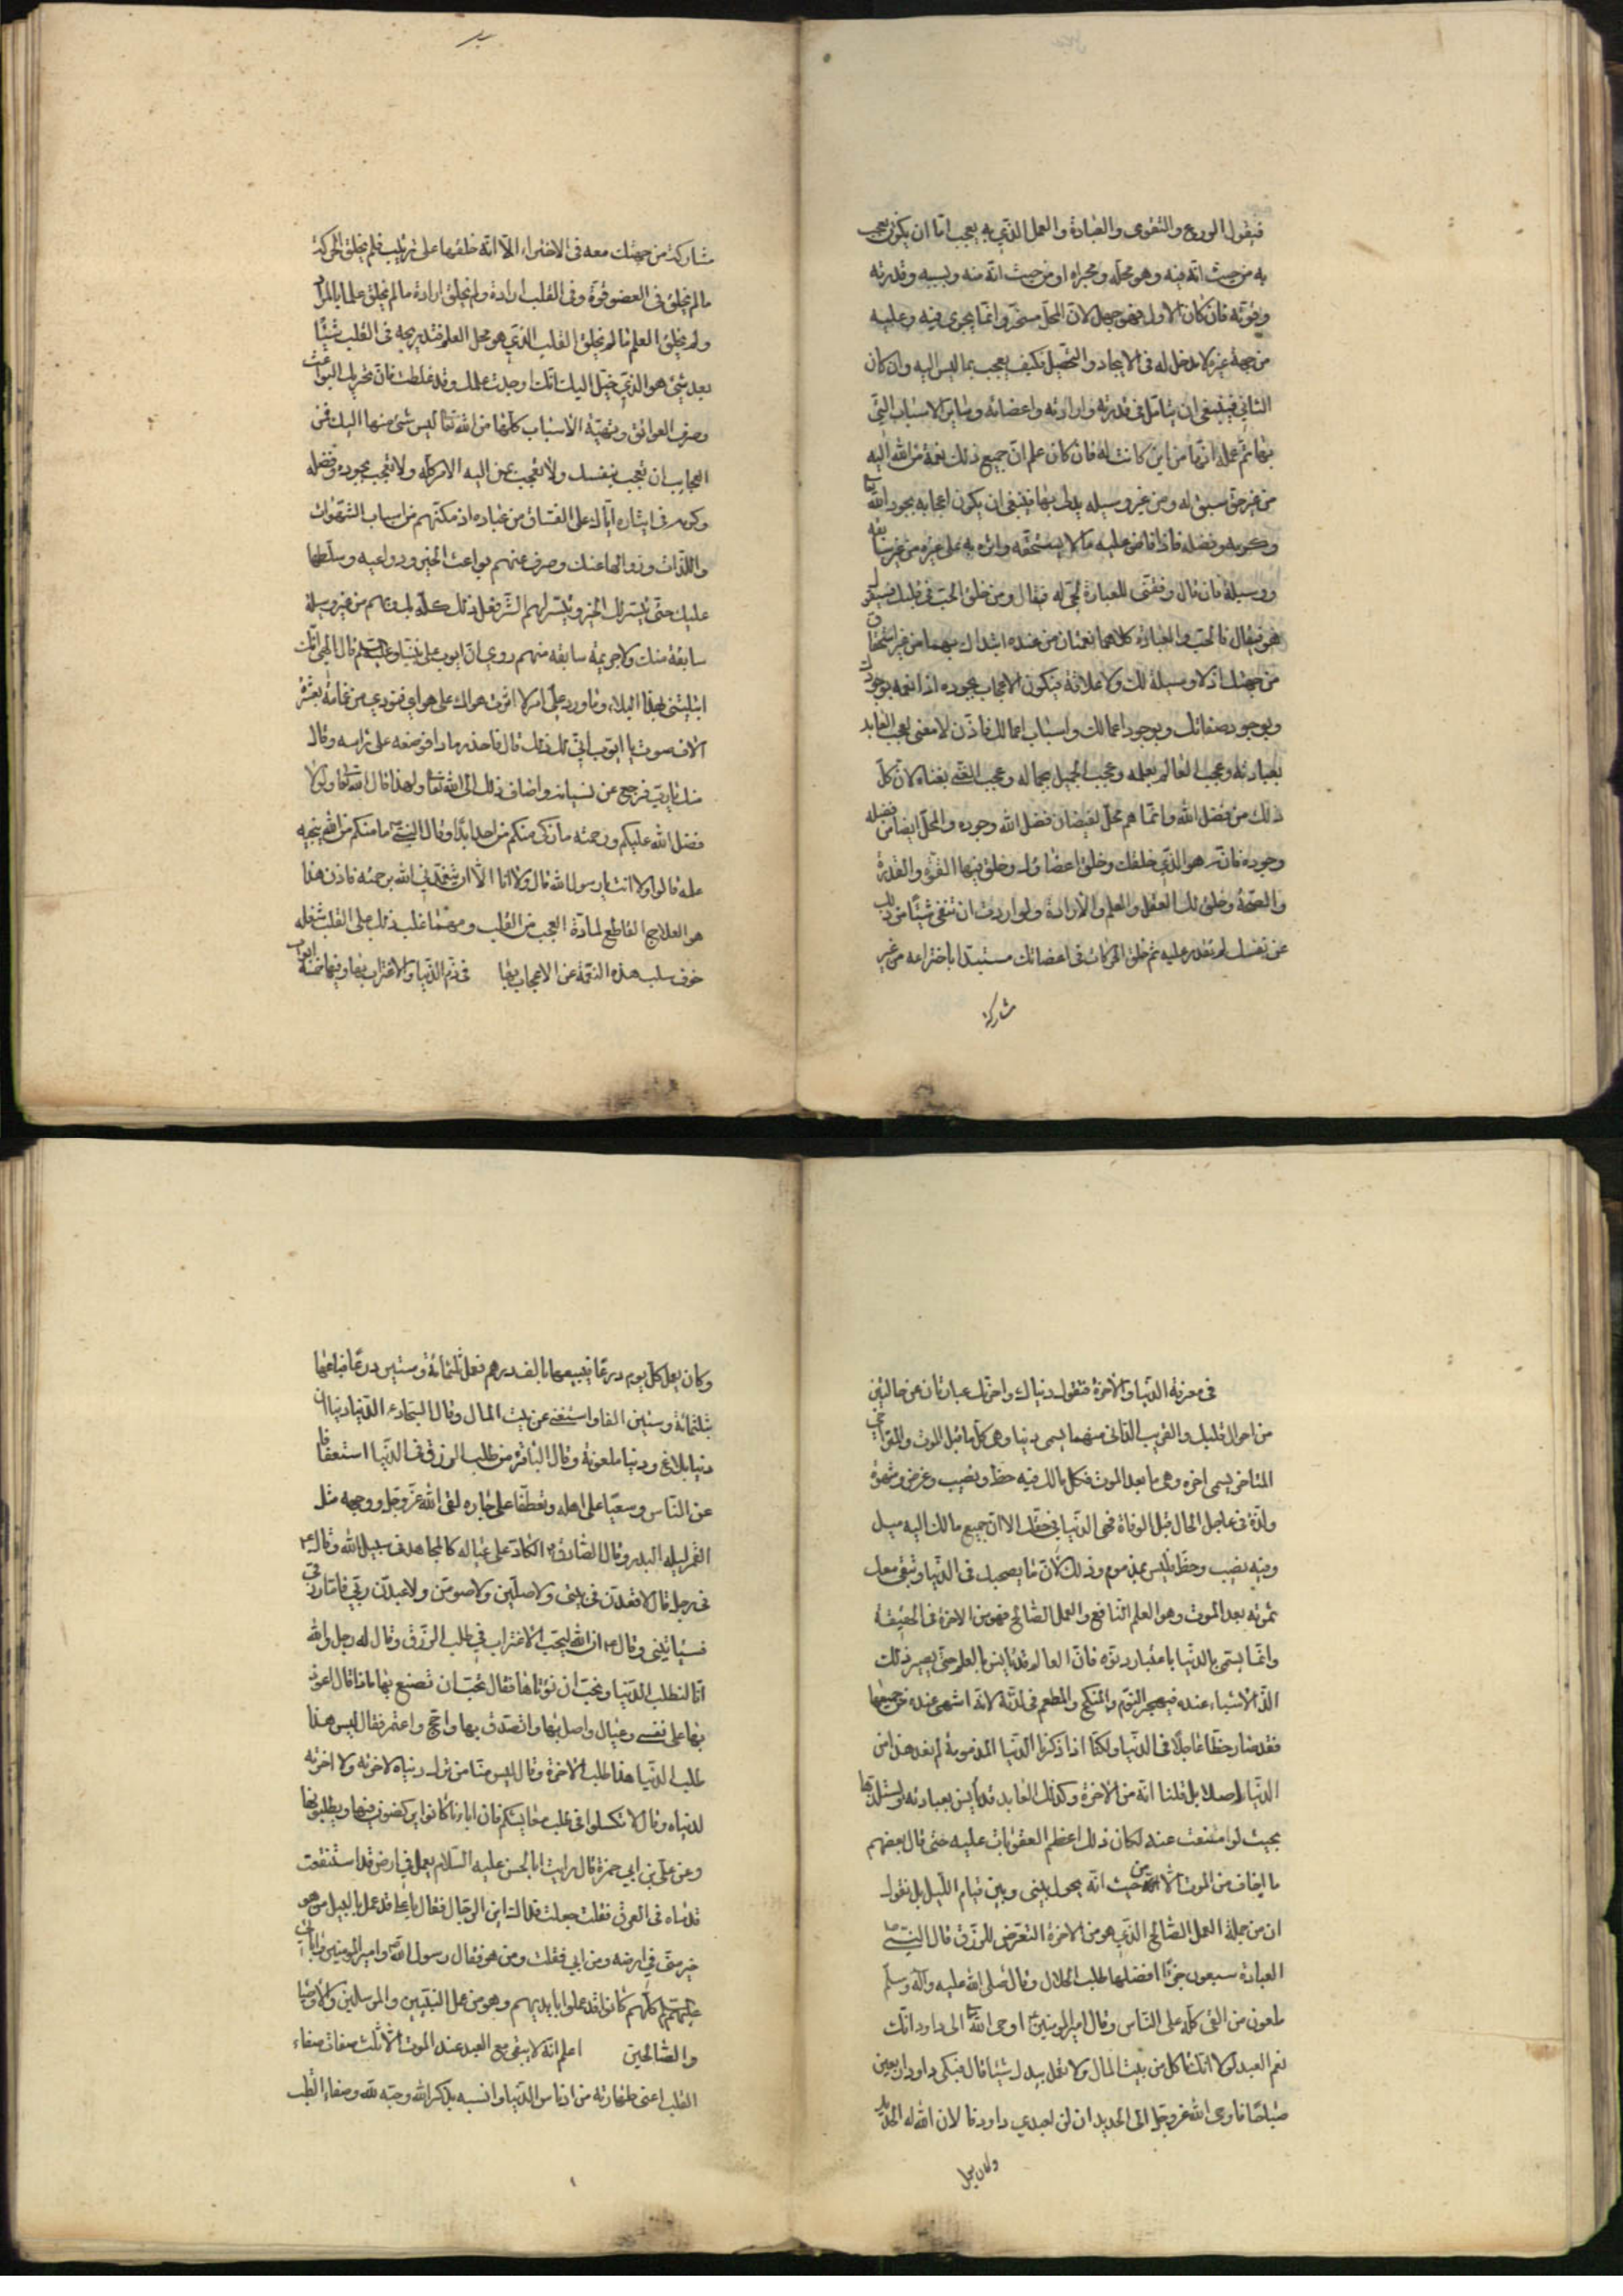 فيقول الورع والتقوى والعبادة والعمل الذي به يعجب اما ان يكون يعجب
به من حيث انه فيه وهو محله ومجراه او من حيث انه منه وبسببه وقدرته
وقوته فان كان الاول فهو جهل لان المحل مسخر وانما يجرى فيه وعليه
من جهة غيره لا مدخل له في الايجاد والتحصيل فكيف يعجب بما ليس اليه وان كان
الثاني فينبغي ان يتامل في قدرته وارادته واعضائه وسائر الاسباب التي
بها يتم عمله انها من اين كانت له فان كان علم ان جميع ذلك نعمة من الله اليه
من غير حق سبق له ومن غير وسيلة يدلى بها فينبغي ان يكون اعجابه بجود الله تعا
وكرمه وفضله فاذا افاض عليه ما لا يستحقه واثره به على غيره من غير سابقة
ووسيلة فان قال وفقني للعبادة لحبي له فيقال ومن خلق الحب في قلبك فسيقول
هو فيقال فالحب والعبادة كلاهما نعمتان من عنده ابتداك بهما من غير استحقاق
من جهتك اذ لا وسيلة لك ولا علاقة فيكون الاعجاب بجوده اذا انعم بوجودك
وبوجود صفاتك وبوجود اعمالك واسباب اعمالك فاذن لا معنى لعجب العابد
بعبادته وعجب العالم بعلمه وعجب الجميل بجماله وعجب الغنى بغناه لان كل
ذلك من فضل الله وانما هم محل لفيضان فضل الله وجوده والمحل ايضا من فضله
وجوده فانه هو الذي خلقك وخلق اعضاؤك وخلق فيها القوة والقدرة
والصحة وخلق لك العقل والعلم والارادة ولو اردت ان تنفى شيئا من ذلك
عن نفسك لم تقدر عليه ثم خلق الحركات في اعضائك مستبدا باختراعه من غير
مشاركة
مشاركة من جهتك معه في الاختراع الا انه خلقها على ترتيب فلم يخلق الحركة
ما لم يخلق في العضو قوة وفى القلب ارادة ولم يخلق ارادة ما لم يخلق علما بالمراد
ولم يخلق العلم ما لم يخلق القلب الذي هو محل العلم فتدريجه في القلب شيئا
بعد شئ هو الذي خيل اليك انك اوجدت عملك وقد غلطت فان تحريك البواعث
وصرف العوائق وتهيئة الاسباب كلها من الله تعا ليس شئ منها اليك فمن
العجايب ان تعجب بنفسك ولا تعجب بمن اليه الامر كله ولا تعجب بجوده وفضله
وكرمه في ايثاره اياك على الفساق من عباده اذ مكنهم من اسباب الشهوات
واللذات وزواها عنك وصرف عنهم بواعث الخير ودواعيه وسلطها
عليك حتى يتيسر لك الخير ويتيسر لهم الشر فعل ذلك كله بك وبهم من غير وسيلة
سابقة منك ولا جريمة سابقة منهم روي ان ايوب على نبينا وعليه السلم قال الهي انك
ابتليتني بهذا البلاء وما ورد علي امر الا اثرت هواك على هواي فنودي من غمامة بعشرة
آلاف صوت يا ايوب انى لك ذلك قال فاخذ رمادا فوضعه على راسه وقال
منك يا رب فرجع عن نسيانه واضاف ذلك الى الله تعا ولهذا قال الله تعا ولولا
فضل الله عليكم ورحمته ما زكى منكم من احد ابدا وقال النبي ص ما منكم من احد ينجيه
عمله قالوا ولا انت يا رسول الله قال ولا انا الا ان يتغمدني الله برحمته فاذن هذا
هو العلاج القاطع لمادة العجب من القلب ومهما غلب ذلك على القلب شغله
خوف سلب هذه النعمة عن الاعجاب بها في ذم الدنيا والاغترار بها وفيها خمسة ابواب
في معرفة الدنيا والآخرة فنقول دنياك واخرتك عبارتان عن حالتين
من احوال قلبك والقريب الدانى منهما يسمى دنيا وهى كل ما قبل الموت والمتراخى
المتاخر يسمى اخرة وهى ما بعد الموت فكل مالك فيه حظ ونصيب وغرض وشهوة
ولذة في عاجل الحال قبل الوفاة فهى الدنيا في حقك الا ان جميع مالك اليه ميل
وفيه نصيب وحظ فليس بمذموم وذلك لان ما يصحبك فى الدنيا وتبقى معك
ثمرته بعد الموت وهو العلم النافع والعمل الصالح فهو من الاخرة فى الحقيقة
وانما يسمى بالدنيا باعتبار دنوه فان العالم قد يانس بالعلم حتى يصير ذلك
الذ الاشياء عنده فيهجر النوم والمنكح والمطعم فى لذته لانه اشهى عنده من جميعها
فقد صار حظا عاجلا فى الدنيا ولكنا اذا ذكرنا الدنيا المذمومة لم نعد هذا من
الدنيا اصلا بل قلنا انه من الاخرة وكذلك العابد قد يأنس بعبادته ويستلذها
بحيث لو امتنعت عنه لكان ذلك اعظم العقوبات عليه حتى قال بعضهم
ما اخاف من الموت الا من حيث انه يحول بينى وبين قيام الليل بل نقول
ان من جملة العمل الصالح الذي هو من الاخرة التعرض للرزق قال النبي ص
العبادة سبعون جزءا افضلها طلب الحلال وقال صلى الله عليه وآله وسلم
ملعون من القى كله على الناس وقال امير المؤمنين ع اوحى الله تعا الى داود انك
نعم العبد لولا انك تاكل من بيت المال ولا تعمل بيدك شيئا قال فبكى داود اربعين
صباحا فاوحى الله عز وجل الى الحديد ان لن لعبدي داود فالان الله له الحديد
وكان يعمل
وكان يعمل كل يوم درعا فيبيعها بالف درهم فعمل ثلثمائة وستين درعا فباعها
بثلثمائة وستين الفا واستغنى عن بيت المال وقال السجاد ع الدنيا دنياان
دنيا بلاغ ودنيا ملعونة وقال الباقر ع من طلب الرزق فى الدنيا استعفافا
عن الناس وسعيا على اهله وتعطفا على جاره لقى الله عز وجل ووجهه مثل
القمر ليلة البدر وقال الصادق ع الكاد على عياله كالمجاهد فى سبيل الله وقال ع
فى رجل قال لاقعدن فى بيتى ولاصلين ولاصومن ولاعبدن ربي فاما رزقى
فسياتينى وقال ع ان الله ليحب الاغتراب فى طلب الرزق وقال له رجل والله
انا لنطلب الدنيا ونحب ان نؤتاها فقال تحب ان تصنع بها ماذا قال اعود
بها على نفسى وعيالى واصل بها واتصدق بها واحج واعتمر فقال ليس هذا
طلب الدنيا هذا طلب الآخرة وقال ليس منا من ترك دنياه لاخرته ولا اخرته
لدنياه وقال لا تكسلوا فى طلب معايشكم فان اباءنا كانوا يركضون فيها ويطلبونها
وعن على بن ابي حمزة قال رايت ابا الحسن عليه السلام يعمل في ارض قد استنقعت
قدماه فى العرق فقلت جعلت فداك اين الرجال فقال يا على قد عمل بالبيل من هو
خير منى في ارضه ومن ابي فقلت ومن هو فقال رسول الله ص وامير المؤمنين واباي
عليهم السلم كلهم كانوا قد عملوا بايديهم وهو من عمل النبيين والمرسلين والاوصيا
والصالحين اعلم انه لا يبقى مع العبد عند الموت الا ثلث صفات صفاء
القلب اعنى طهارته من ادناس الدنيا وانسه بذكر الله وحبه لله وصفاء القلب